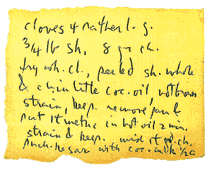 cloves 4 rather l. g.
3/4 lb sh, 8 g ch.
fry wh. cl., peeled sh. whole
& ch. in little coc. oil not brown
strain, keep. remove pan &
put 1t in hot oil 2 min.
strain & keep. mix ch.
with coc. milk 1/2